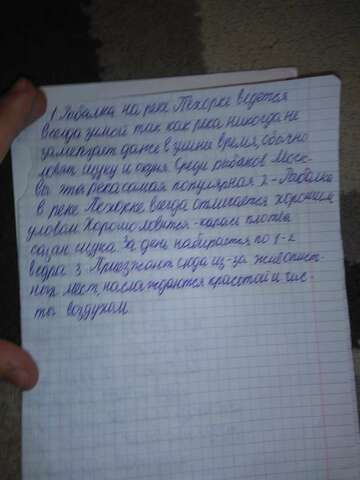 1 Рыбалка на реке Пехорке ведется
всегда зимой так как река никогда не
замерзает даже в зимнее время, обычно
ловят щуку и окуня. Среди рыбаков Моск-
вы эта река самая популярная 2 - Рыбалка
в реке Пехорке всегда отличается хорошим
уловом Хорошо ловится - караси плотва
сазан щука. За день набирается по 1-2
ведра 3. Приезжают сюда из-за живопист-
ных мест, наслаждаются красотой и чис-
ты воздухом